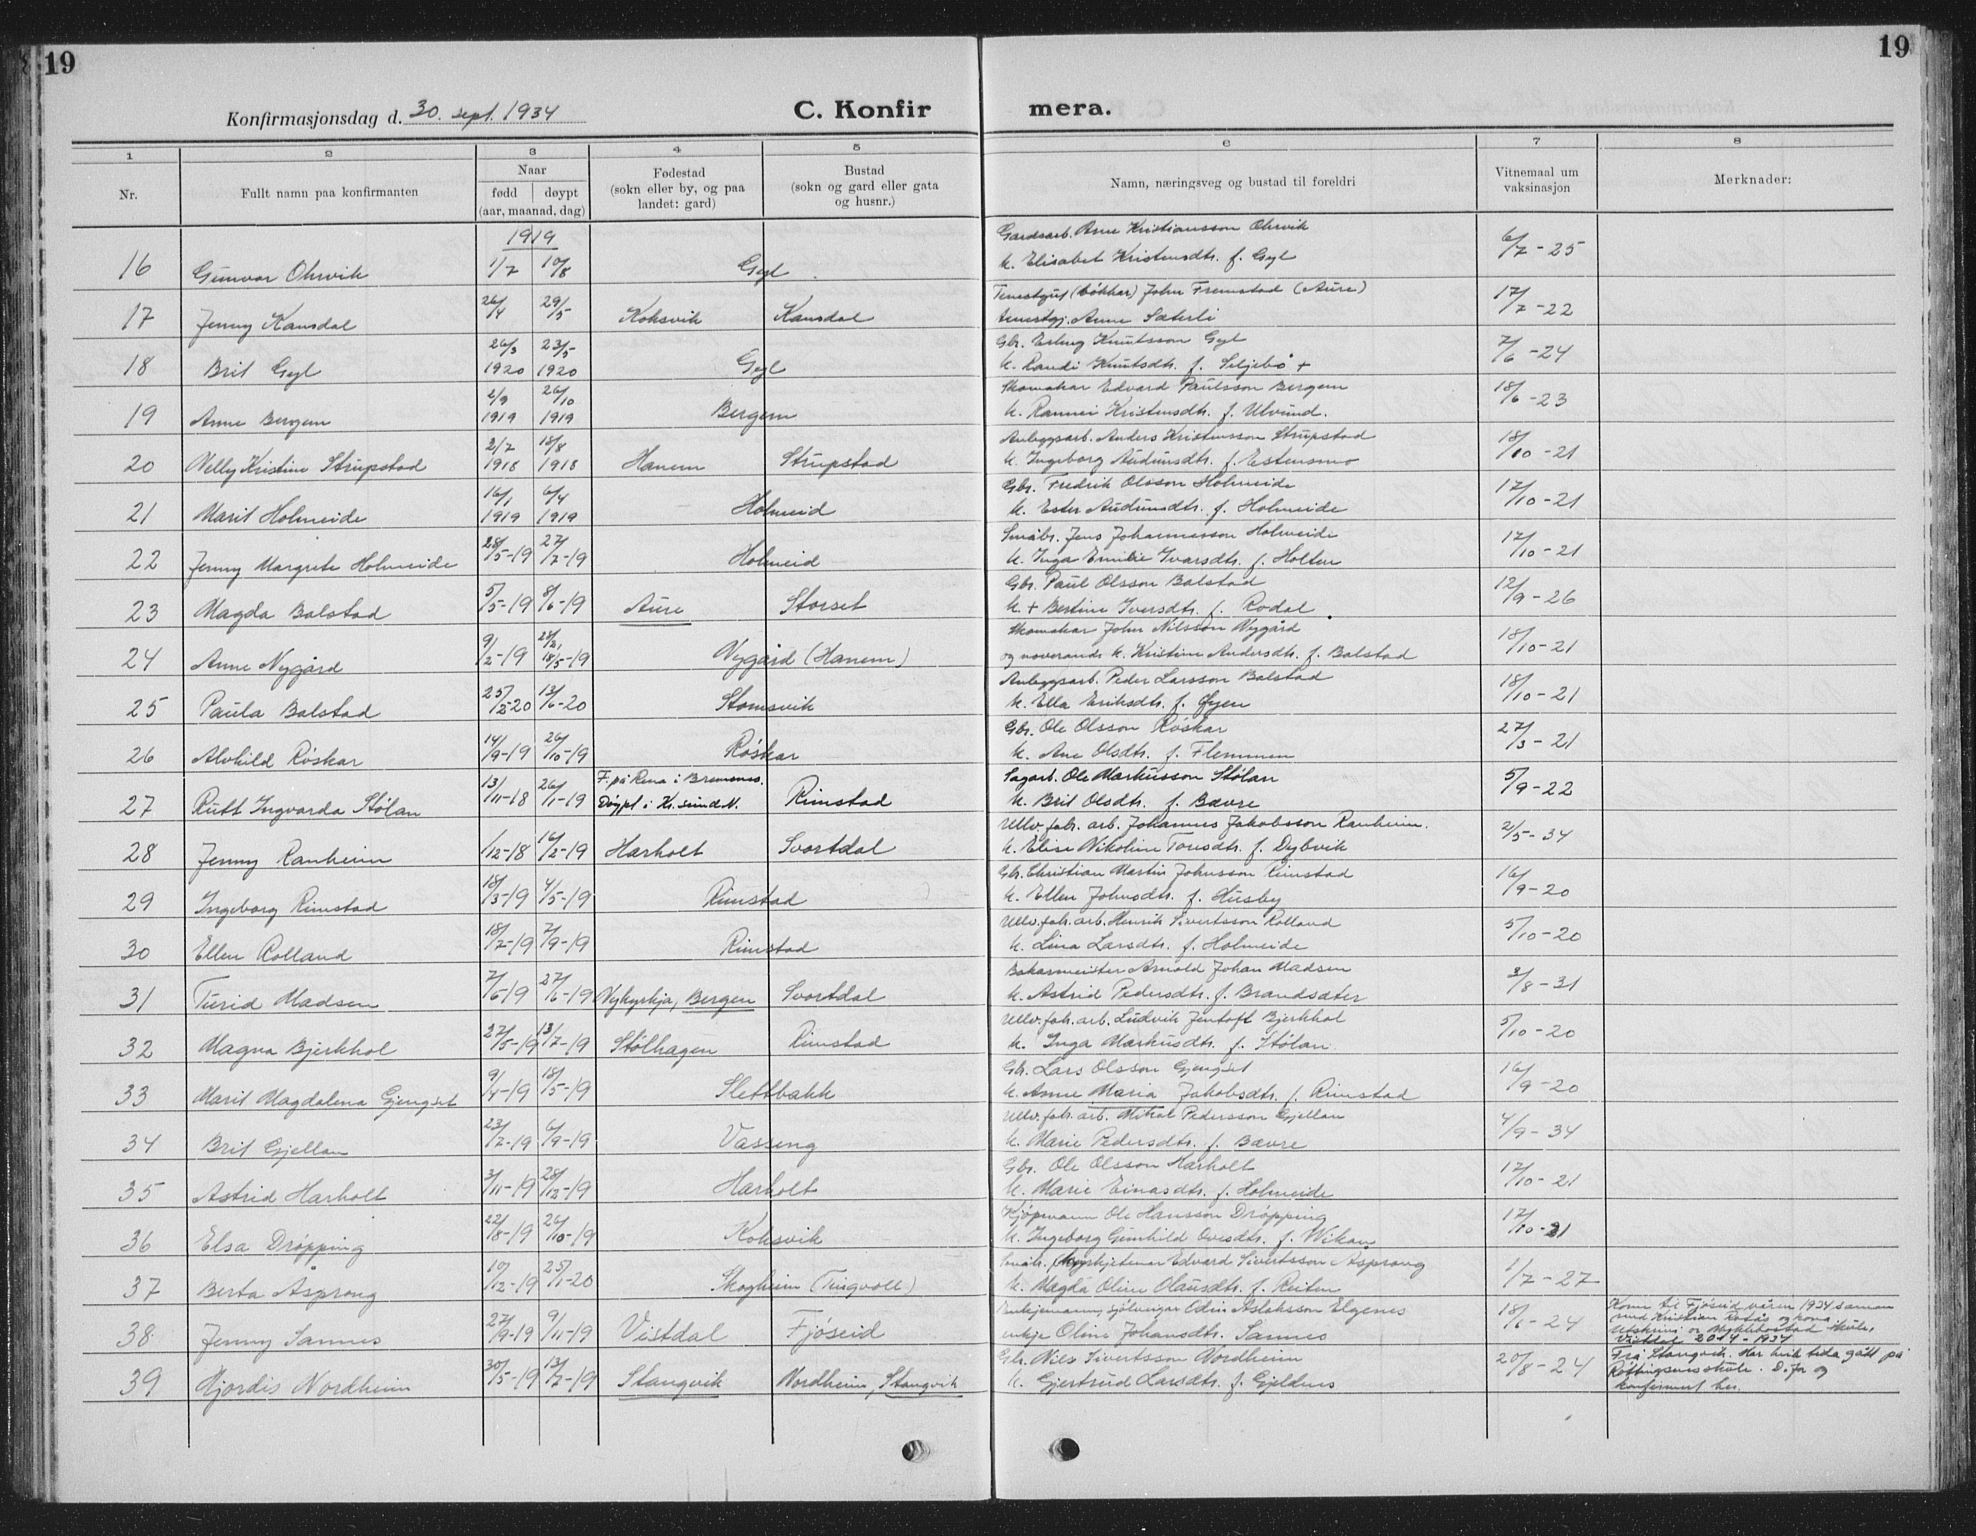 19
19
Konfirmasjonsdag d. 30. sept. 1934
C. Konfir mera.
1 2 3 4 5 6 7 8
Nr.
Fullt namn paa konfirmanten
Naar
fødd døypt
(aar, maanad, dag)
Fødestad
(sokn eller by, og paa
landet: gard)
Bustad
(sokn og gard eller gata
og husnr.)
Namn, næringsveg og bustad til foreldri
Vitnemaal um
vaksinasjon
Merknader:
1919
Gardsarb. Arne Kristiansson Ohrvik
16 Gunvor Ohrvik 1/7 10/8 Gyl k. Elisabet Kristensdtr. f. Gyl 6/7 - 25
Tenestgut (bøkkar) John Fremstad (Aure)
17 Jenny Kansdal 26/4 29/5 Koksvik Kansdal tenestgj. Anne Sæterli 17/7 - 22
Gbr. Erling Knutsson Gyl
18 Brit Gyl 26/3 1920 23/5 1920 Gyl k. Randi Knutsdtr. f. Seljebø + 7/6 - 24
Skomakar Edvard Paulsson Bergem
19 Anne Bergem 2/9 1919 26/10 1919 Bergem k. Rannei Kristensdtr. f. Ulvund. 18/6 - 23
Anleggsarb. Anders Kristensson Strupstad
20 Nelly Kristine Strupstad 2/7 1918 18/8 1918 Hanem Strupstad k. Ingeborg Audunsdtr. f. Estensmo 18/10 - 21
Gbr. Fredrik Olsson Holmeide
21 Marit Holmeide 16/1 1919 6/4 1919 Holmeid k. Ester Audunsdtr. f. Holmeide 17/10 - 21
Småbr. Jens Johannesson Holmeide
22 Jenny Margrete Holmeide 28/5-19 27/7-19 Holmeid k. Inga Emilie Ivarsdtr. f. Holten 17/10 - 21
Gbr. Paul Olsson Balstad
23 Magda Balstad 5/5-19 8/6-19 Aure Storset k. + Bertine Iversdtr. f. Rodal 12/9 - 26
Skomakar John Nilsson Nygård
24 Anne Nygård 9/2-19 18/5-19 Nygård (Hanem) og noverande k. Kristine Andersdtr. f. Balstad 18/10 - 21
Anleggsarb. Peder Larsson Balstad
25 Paula Balstad 25/2-20 13/6-20 Stomsvik k. Ella Eriksdtr. f. Øyen 18/10 - 21
Gbr. Ole Olsson Røskar
26 Alvhild Røskar 14/9-19 26/10-19 Røskar k. Ane Olsdtr. f. Flemmen 27/3 - 21
F. på Rena i Bremenes. Sagarb. Ole Markusson Stølan
27 Rutt Ingvarda Stølan 13/11-18 26/1-19 Døypt i Kr.sund N. Rimstad k. Brit Olsdtr. f. Bævre 5/9 - 22
Ullv.fabr. arb. Johannes Jakobsson Ranheim.
28 Jenny Ranheim 1/12-18 16/2-19 Harholt Svortdal k. Elise Nikoline Toresdtr. f. Dybvik 2/5 - 34
Gbr. Christian Martin Johnsson Rimstad
29 Ingeborg Rimstad 18/3-19 4/5-19 Rimstad k. Ellen Johnsdtr. f. Husby 16/9 - 20
Ullv.fabr. arb. Henrik Sivertsson Rolland
30 Ellen Rolland 18/7-19 7/9-19 Rimstad k. Lina Larsdtr. f. Holmeide 5/10 - 20
Bakarmeister Arnold Johan Madsen
31 Turid Madsen 7/5-19 27/6-19 Nykyrkja, Bergen Svortdal k. Astrid Pedersdtr. f. Brandsæter 3/8 - 31
Ullv.fabr. arb. Ludvik Jentoft Bjerkhol
32 Magna Bjerkhol 27/5-19 13/7-19 Stølhagen Rimstad k. Inga Markusdtr. f. Stølan. 5/10 - 20
Gbr. Lars Olsson Gjengset
33 Marit Magdalena Gjengset 9/4-19 18/5-19 Slettbakk k. Anne Maria Jakobsdtr. f. Rimstad 16/9 - 20
Ullv.fabr. arb. Mikal Pedersson Gjellan
34 Brit Gjellan 23/7-19 6/9-19 Vasseng k. Marie Pedersdtr. f. Bævre 4/9 - 34
Gbr. Ole Olsson Harholt
35 Astrid Harholt 3/11-19 28/12-19 Harholt k. Marie Einasdtr. f. Holmeide 17/10 - 21
Kjøpmann Ole Hansson Drøpping
36 Elsa Drøpping 22/8-19 26/10-19 Koksvik k. Ingeborg Gunhild Ovesdtr. f. Wikan 17/10 - 21
Småbr. Edvard Sivertsson Asprong
37 Berta Asprong 10/12-19 25/1-20 Skogheim (Tingvoll) k. Magda Oline Olausdtr. f. Reiten 1/7 - 27
Enkjemann, sjølveigar Odin Aslaksson Elgenes
38 Jenny Sannes 27/9-19 9/11-19 Vistdal Fjøseid enkje Oline Johansdtr. Sannes 18/6 - 24
Kom til Fjøseid våren 1934 saman
med Kristian Røtås og kona
Utskriv. or Myklebostad skule,
Vistdal 20/4 - 1934
Gbr. Nils Sivertsson Nordheim
39 Hjordis Nordheim 30/5-19 13/7-19 Stangvik Nordheim, Stangvik k. Gjertrud Larsdtr. f. Gjeldnes 20/8 - 24
Frå Stangvik. Har heile tida gått på
Røttingsnes skule. Difor og
konfirmert her.